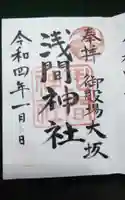 奉拝 御殿場大坂
浅間神社
令和四年一月 日